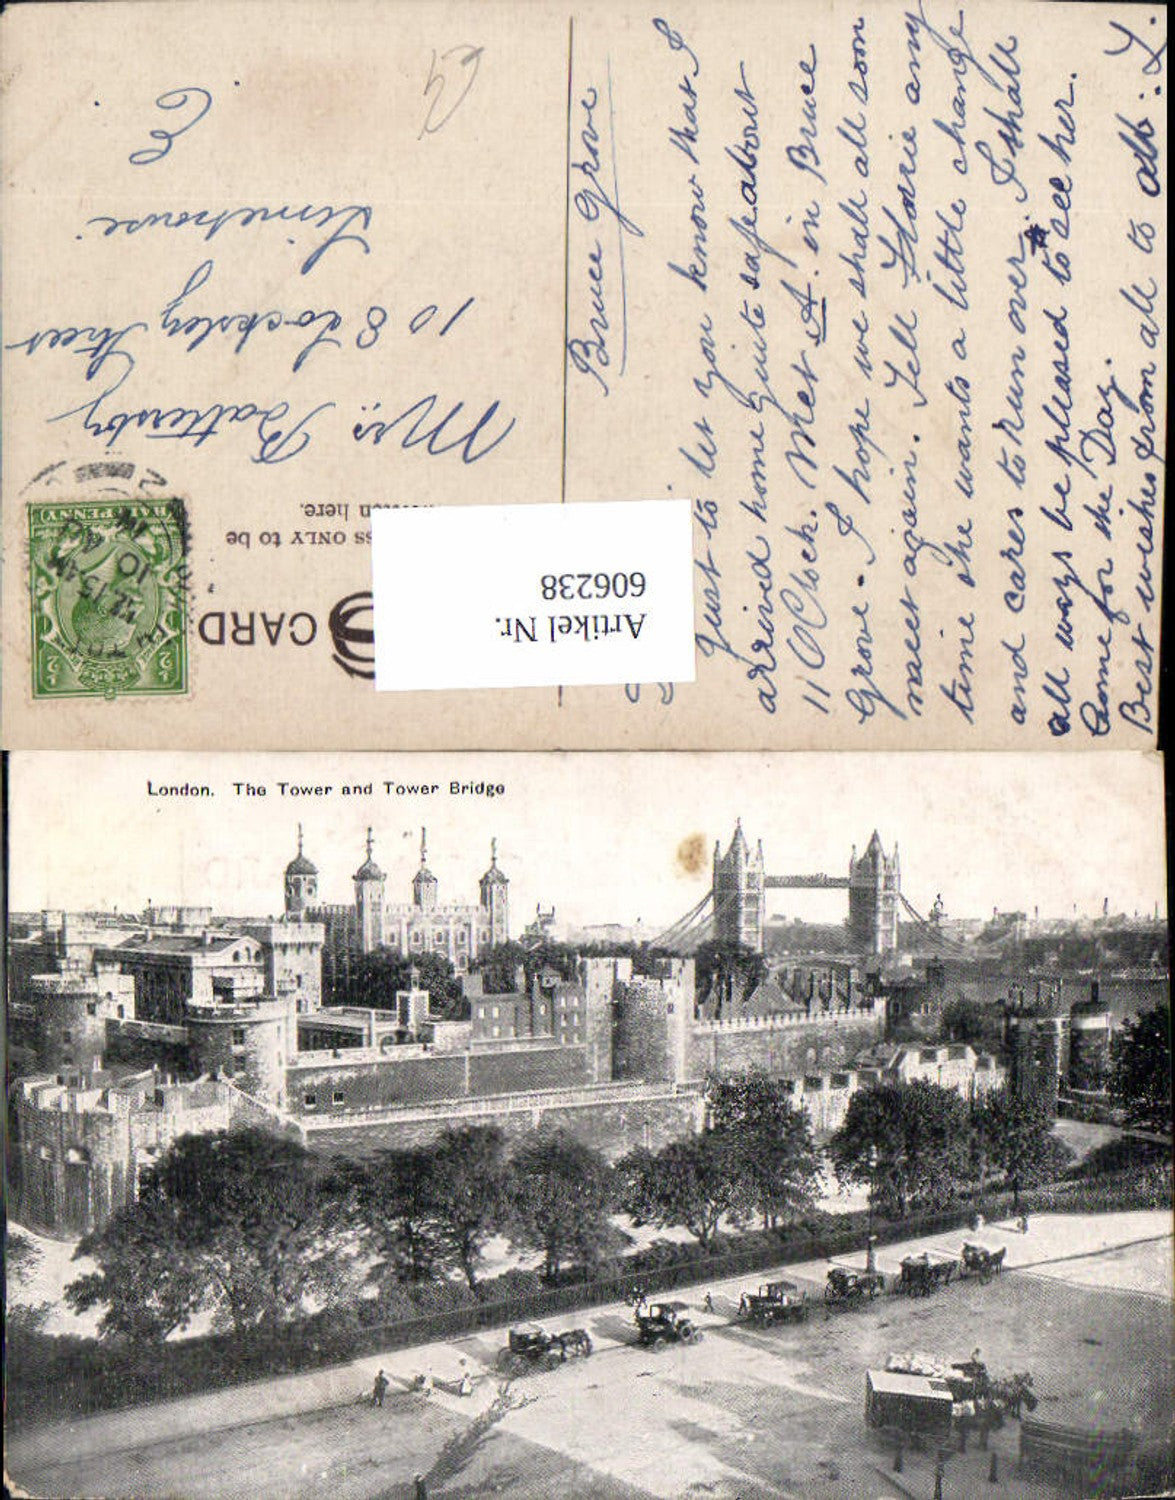 Bruce Grove
Just to let you know that I
arrived home quite safe about
11 O Clock. Met A. in Bruce
Grove - I hope we shall all soon
meet again. Tell Florie any
time she wants a little change
and cares to run over I shall
all ways be pleased to see her.
Come for the Day.
Best wishes from all to all: L.
CARD
SS ONLY to be
written here.
HALFPENNY
12.15 AM
10
Mrs. Battersby
108 Locksley Street
Limehouse
E.
Artikel Nr.
606238
London. The Tower and Tower Bridge